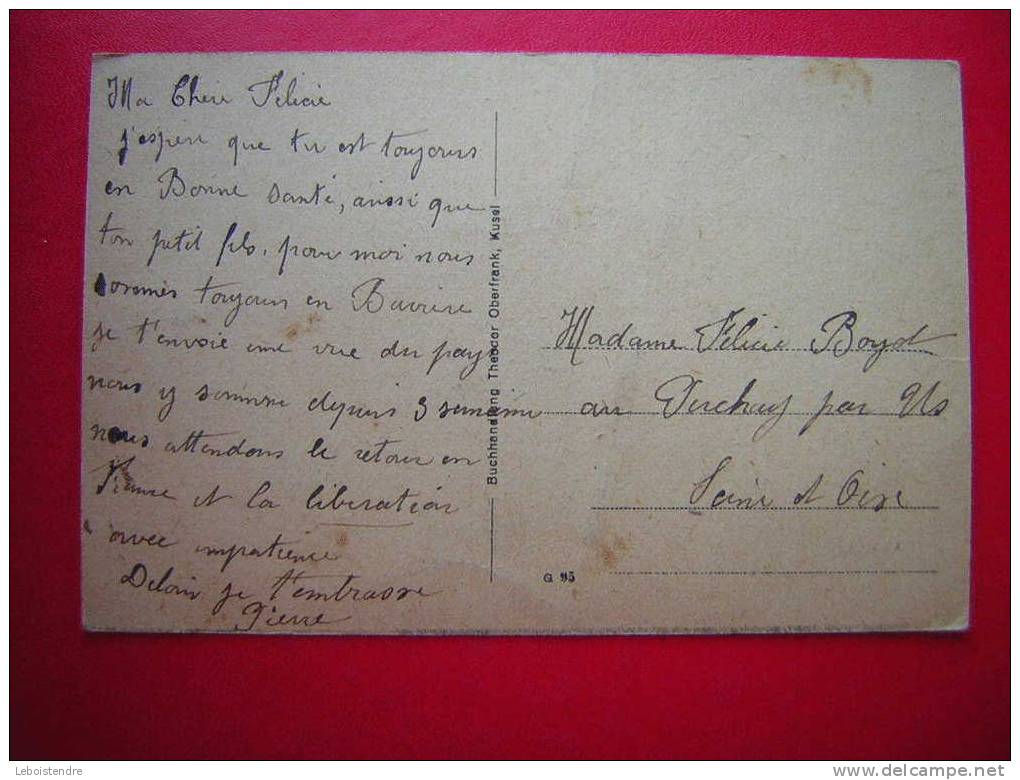 Ma Chere Felicie
j'espere que tu est toujours
en Bonne santé, aussi que
ton petit fils, pour moi nous
sommes toujours en Baviere
je t'envoie une vue du pays
nous y somme depuis 3 semaine
nous attendons le retour en
France et la libération
avec impatience
De loin je t'embrasse
Pierre
Buchhandlung Theodor Oberfrank, Kusel
G 95
Madame Félicie Boyot
au Perchay par Us
Seine et Oise
Leboistendre
delcampe.net